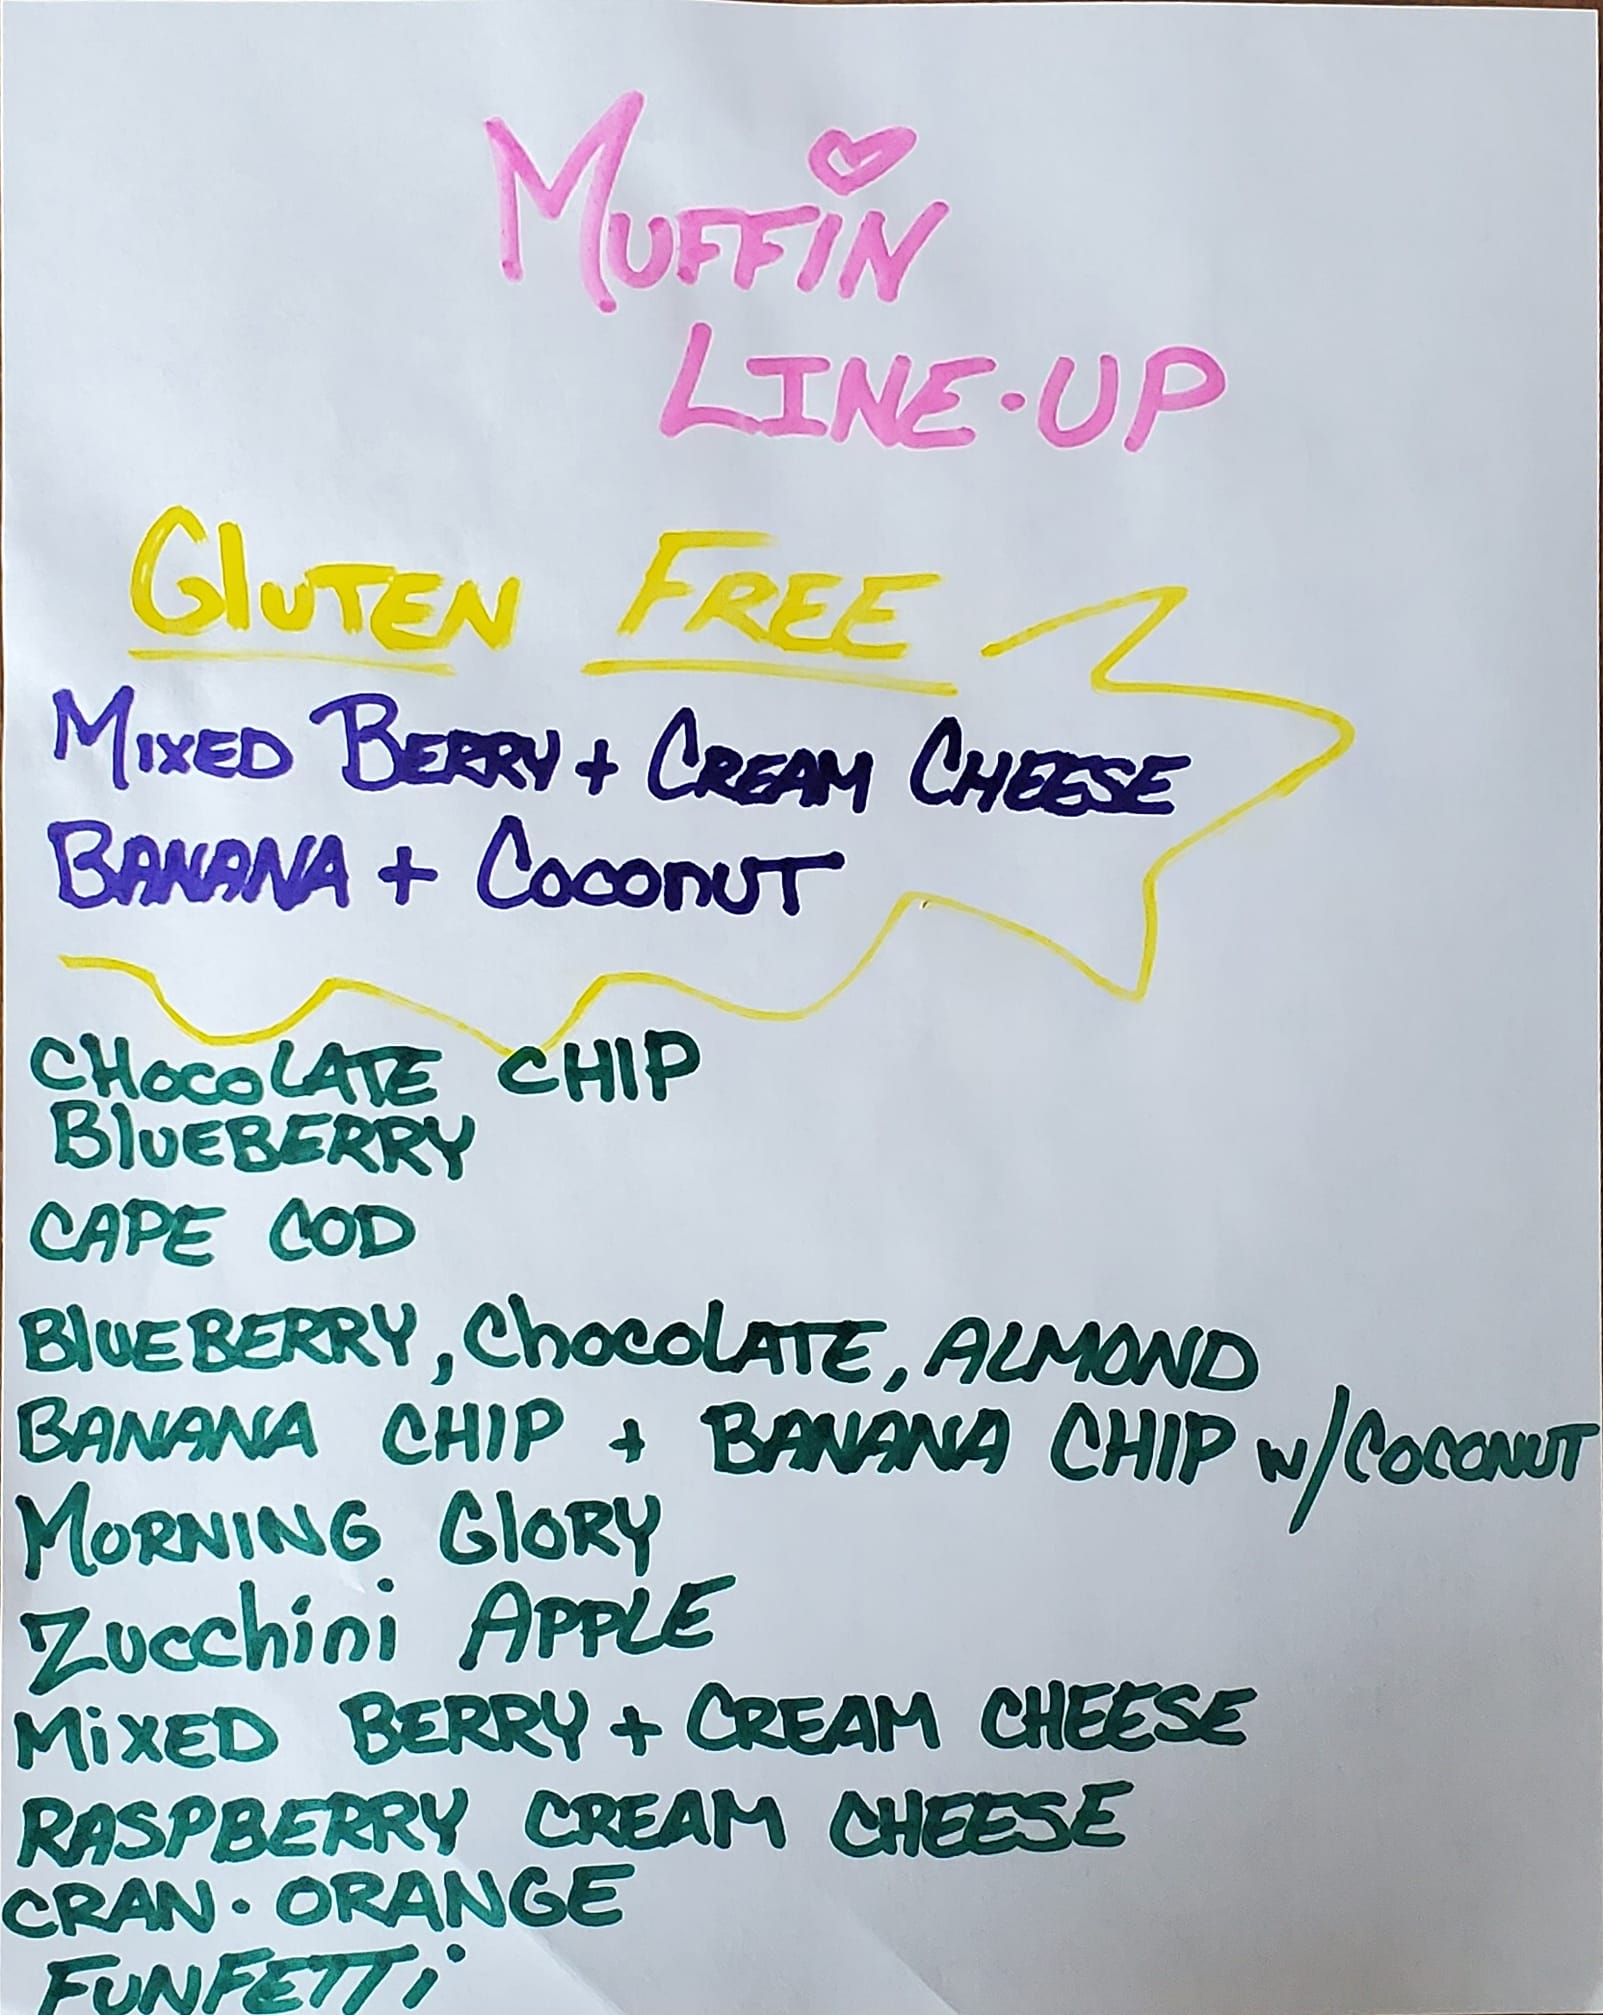 MUFFIN
LINE-UP
GLUTEN FREE
MIXED BERRY + CREAM CHEESE
BANANA + COCONUT
CHOCOLATE CHIP
BLUEBERRY
CAPE COD
BLUEBERRY, CHOCOLATE, ALMOND
BANANA CHIP + BANANA CHIP W/COCONUT
MORNING GLORY
ZUCCHINI APPLE
MIXED BERRY + CREAM CHEESE
RASPBERRY CREAM CHEESE
CRAN-ORANGE
FUNFETTI